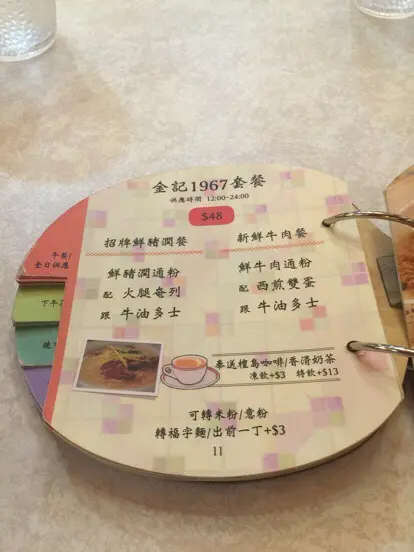 金記1967套餐
供應時間 12:00-24:00
$48
招牌鮮豬潤餐
鮮豬潤通粉
配 火腿奄列
跟 牛油多士
新鮮牛肉餐
鮮牛肉通粉
配 西煎雙蛋
跟 牛油多士
奉送檀島咖啡/香滑奶茶
凍飲+$3 特飲+$13
可轉米粉/意粉
轉福字麵/出前一丁+$3
11
午餐/
全日供應
下午
晚